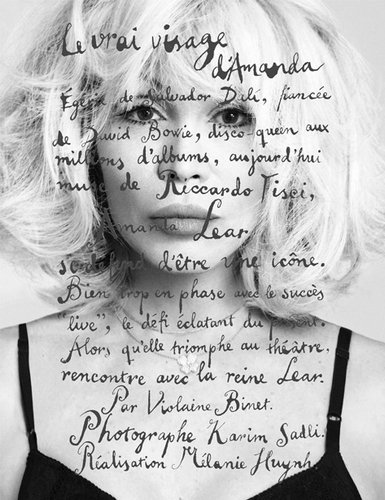 Le vrai visage
d'Amanda
Égérie de Salvador Dalí, fiancée
de David Bowie, disco-queen aux
millions d'albums, aujourd'hui
muse de Riccardo Tisci,
Amanda Lear
d'être une icône.
Bien trop en phase avec le succès
"live", le défi éclatant du présent.
Alors qu'elle triomphe au théâtre,
rencontre avec la reine Lear.
Par Violaine Binet.
Photographe Karim Sadli.
Réalisation Mélanie Huynh.